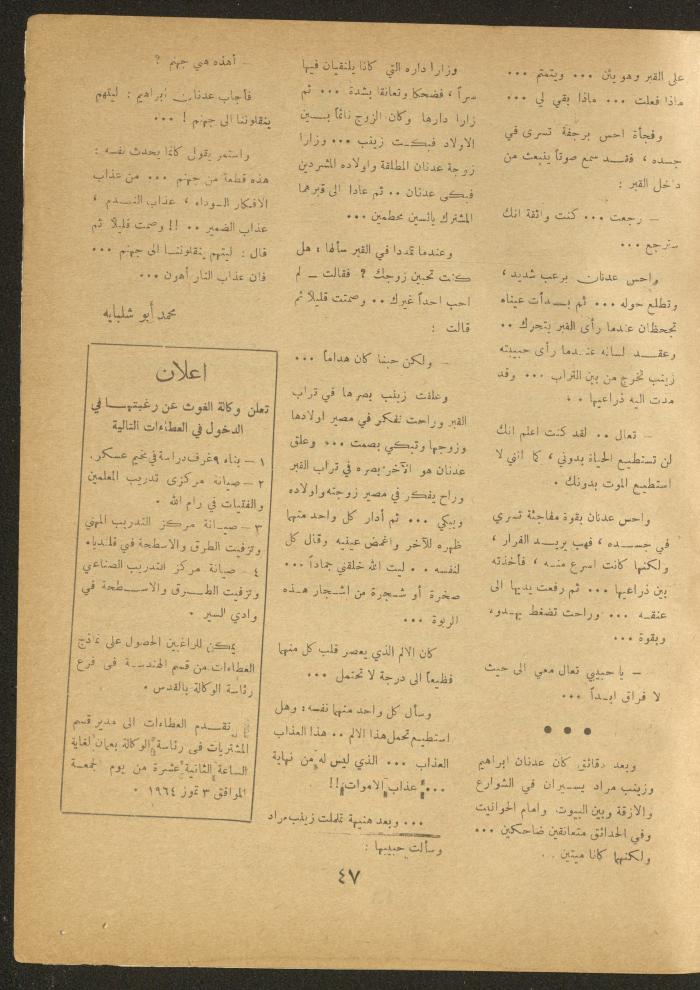 على القبر وهو يئن ... ويتمتم ...
ماذا فعلت ... ماذا بقي لي ...
وفجأة احس برجفة تسري في
جسده ، فقد سمع صوتاً ينبعث من
داخل القبر :
— رجعت ... كنت واثقة انك
سترجع ...
واحس عدنان برعب شديد ،
وتطلع حوله ... ثم بدأت عيناه
تجحظان عندما رأى القبر يتحرك ..
وعقد لسانه عندما رأى حبيبته
زينب تخرج من بين التراب ... وقد
مدت اليه ذراعيها ..
— تعال .. لقد كنت اعلم انك
لن تستطيع الحياة بدوني ، كما انني لا
استطيع الموت بدونك .
واحس عدنان بقوة مفاجئة تسري
في جسده ، فهب يريد الفرار ،
ولكنها كانت اسرع منه ، فأخذته
بين ذراعيها ... ثم رفعت يديها الى
عنقه ... وراحت تضغط بهدوء
وبقوة ...
— يا حبيبي تعال معي الى حيث
لا فراق ابداً ...
● ● ●
وبعد دقائق كان عدنان ابراهيم
وزينب مراد يسيران في الشوارع
والازقة وبين البيوت وامام الحوانيت
وفي الحدائق متعانقين ضاحكين ...
ولكنهما كانا ميتين ..
وزارا داره التي كانا يلتقيان فيها
سراً ، فضحكا وتعانقا بشدة ... ثم
زارا دارها وكان الزوج نائماً بين
الاولاد فبكت زينب ... وزارا
زوجة عدنان المطلقة واولاده المشردين
فبكى عدنان .. ثم عادا الى قبرهما
المشترك يائسين محطمين ...
وعندما تمددا في القبر سألها : هل
كنت تحبين زوجك ؟ فقالت — لم
احب احداً غيرك .. وصمتت قليلاً ثم
قالت :
— ولكن حبنا كان هداماً ...
وعلقت زينب بصرها في تراب
القبر وراحت تفكر في مصير اولادها
وزوجها وتبكي بصمت ... وعلق
عدنان هو الآخر بصره في تراب القبر
وراح يفكر في مصير زوجته واولاده
ويبكي ... ثم أدار كل واحد منهما
ظهره للآخر واغمض عينيه وقال كل
لنفسه .. ليت الله خلقني جماداً ...
صخرة أو شجرة من اشجار هذه
الربوة ...
كان الالم الذي يعصر قلب كل منهما
فظيعاً الى درجة لا تحتمل ...
وسأل كل واحد منهما نفسه : وهل
استطيع تحمل هذا الالم .. هذا العذاب
العذاب ... الذي ليس له من نهاية
... عذاب الاموات !!
... وبعد هنيهة تململت زينب مراد
وسألت حبيبها :
— أهذه هي جهنم ؟
فأجاب عدنان ابراهيم : ليتهم
ينقلوننا الى جهنم ! ...
واستمر يقول كأنما يحدث نفسه :
هذه قطعة من جهنم ... من عذاب
الافكار السوداء ، عذاب الندم ،
عذاب الضمير .. !! وصمت قليلاً ثم
قال : ليتهم ينقلوننا الى جهنم ...
فان عذاب النار أهون ...
محمد أبو شلبايه
اعلان
تعلن وكالة الغوث عن رغبتها في
الدخول في العطاءات التالية
١ — بناء ٩ غرف دراسة في مخيم عسكر .
٢ — صيانة مركزي تدريب المعلمين
والفتيات في رام الله .
٣ — صيانة مركز التدريب المهني
وتزفيت الطرق والاسطحة في قلنديا .
٤ — صيانة مركز التدريب الصناعي
وتزفيت الطرق والاسطحة في
وادي السير .
يمكن للراغبين الحصول على نماذج
العطاءات من قسم الهندسة في فرع
رئاسة الوكالة بالقدس .
تقدم العطاءات الى مدير قسم
المشتريات في رئاسة الوكالة بعمان لغاية
الساعة الثانية عشرة من يوم الجمعة
الموافق ٣ تموز ١٩٦٤ .
٤٧